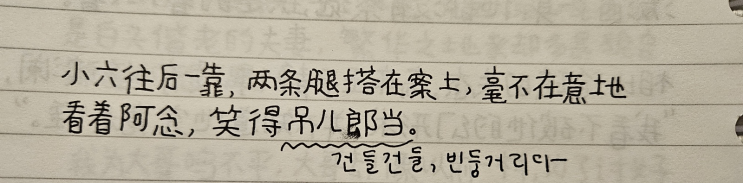 小六往后一靠, 两条腿搭在案上, 毫不在意地
看着阿念, 笑得吊儿郎当。
건들건들, 빈둥거리다